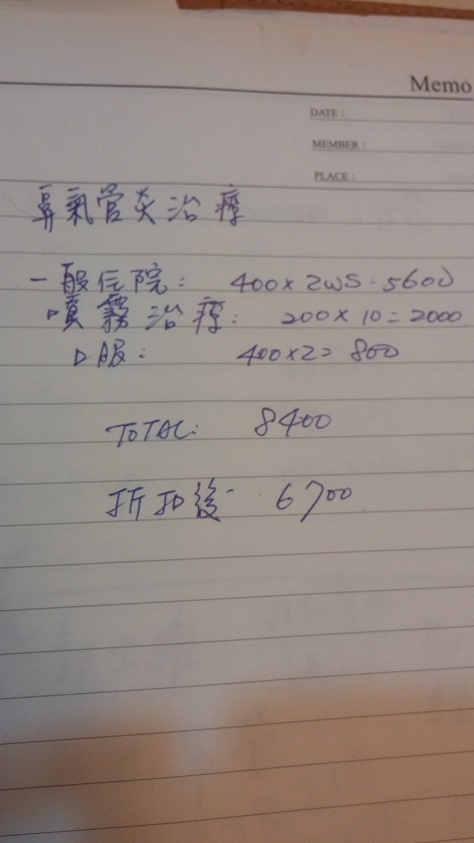 Memo
DATE :
MEMBER :
PLACE :
鼻氣管炎治療
一般住院: 400 x 2ws = 5600
噴霧治療: 200 x 10 = 2000
口服: 400 x 2 = 800
TOTAL: 8400
折扣後: 6700